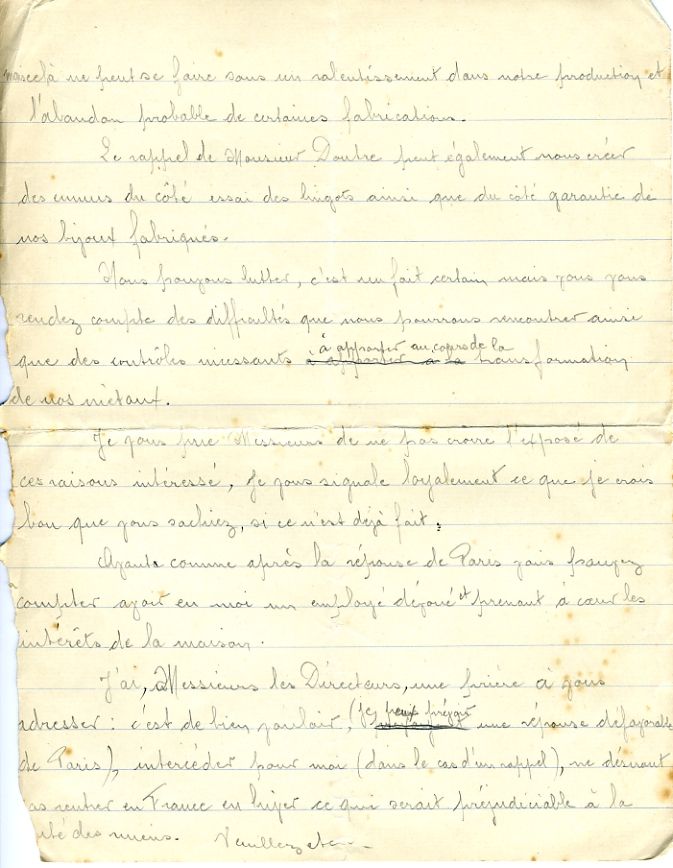 mais celà ne peut se faire sans un ralentissement dans notre production et
l'abandon probable de certaines fabrications.
Le rappel de Monsieur Doutre peut également nous créer
des ennuis du côté essai des lingots ainsi que du côté garantie de
nos bijoux fabriqués.
Nous pouvons lutter, c'est un fait certain mais vous vous
rendez compte des difficultés que nous pourrons rencontrer ainsi
à apporter au cours de la
que des contrôles incessants à apporter à la transformation
de nos métaux.
Je vous prie Messieurs de ne pas croire l'exposé de
ces raisons intéressé, je vous signale loyalement ce que je crois
bon que vous sachiez, si ce n'est déjà fait.
comme après la réponse de Paris vous pouvez
compter avoir en moi un employé dévoué et prenant à cœur les
intérêts de la maison.
J'ai, Messieurs les Directeurs, une prière à vous
je peux prévoir
adresser: c'est de bien vouloir, ( une réponse défavorable
de Paris), intercéder pour moi (dans le cas d'un rappel), ne désirant
pas rentrer en France en hiver ce qui serait préjudiciable à la
des miens. Veuillez